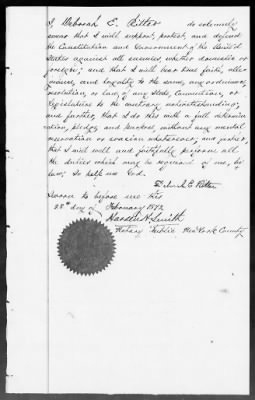 I, Deborah E. Ritter do solemnly
swear that I will support, protect, and defend
the Constitution and Government of the United
States against all enemies, whether domestic or
foreign; and that I will bear true faith, alle-
giance, and loyalty to the same, any ordinance,
resolution, or law, of any State, Convention, or
Legislature to the contrary notwithstanding;
and further, that I do this with a full determin-
ation, pledge, and purpose, without any mental
reservation or evasion whatsoever; and further,
that I will well and faithfully perform all
the duties which may be required of me, by
law; So help me God.
Deborah E. Ritter
Sworn to before me this
28th day of February 1872
Smith
Notary Public New York County